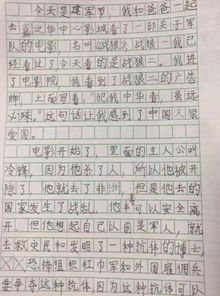 今天是建军节，我和爸爸一起
去新之华中心影城看了一部关于军
队的电影，名叫《战狼》二，战狼一我已
经看过了今天看的是战狼二。我进
了电影院，我看到了战狼二的广告
牌，上面写着："犯我中华者，虽远
必殊。"这句话让我感到了中国人很
爱国。
电影开始了，里面的主人公叫
冷锋，因为他杀了人，所以他被开
除了，他就去了非洲，但是他去的
国家发生了战乱，他本可以安全离
开，但他想起自己以前是军人，就
去救灾民和发明了一种抗体的博士
恐怖组织红巾军和外国雇佣兵
要争夺这种抗体因为这种抗体可以